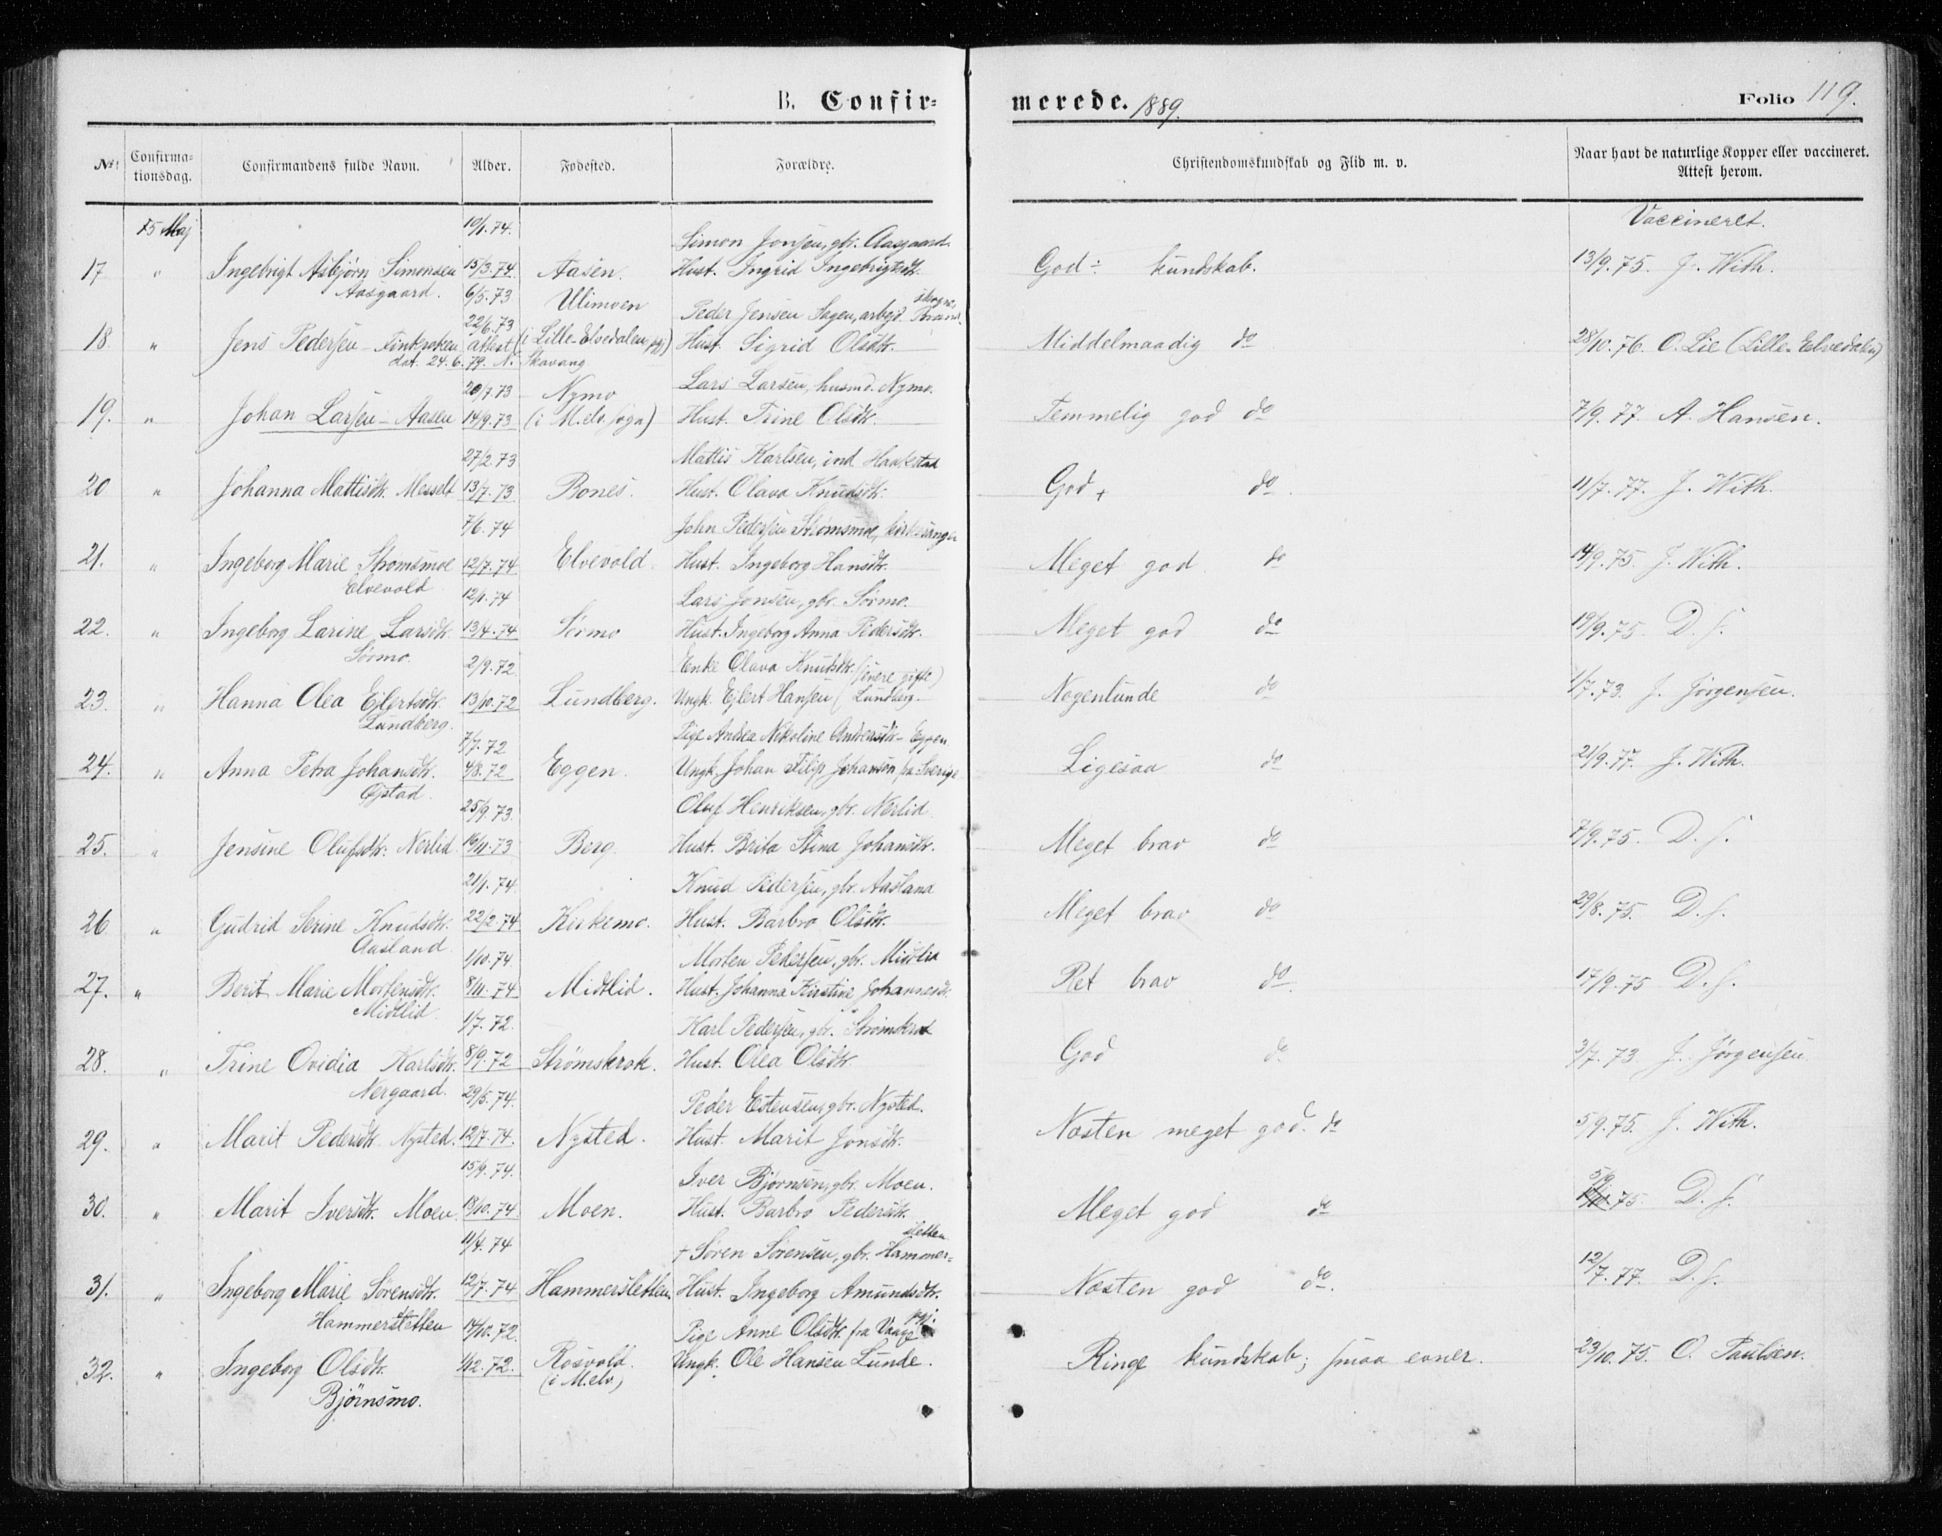 B. Confir=
merede. 1889.
Folio 119.
No. Confirma=tionsdag. Confirmandens fulde Navn. Alder. Fødested. Forældre. Christendomskundskab og Flid m. v. Naar havt de naturlige Kopper eller vaccineret. Attest herom.
15 Maj 10/1.74. Simon Jonsen, gbr. Aasgaard. Vaccineret.
17 " Ingebrigt Asbjørn Simonsen 15/3.74 Aasen. Hust. Ingrid Ingebrigtsdtr. God÷ kundskab. 13/9.75. J. With.
Aasgaard. 6/5.73 Ulimoen Peder Jensen Sagen, arbejd.
18. " Jens Pedersen Finkroken 22/6.73 attest (i Lille-Elvedalen pgj) Hust. Sigrid Olsdtr. Middelmaadig do 28/10.76. O. Lie (Lille-Elvedalen)
dat. 24.6.79. N. Skavang
20/7.73 Nymo Lars Larsen, husmd. Nymo.
19. " Johan Larsen - Aasen 14/9.73 (i M.elv. sogn) Hust. Trine Olsdtr. Temmelig god do 7/9.77 A. Hansen.
27/2.73 Mattis Karlsen, ind. Haakstad
20 " Johanna Mattisdtr. Messelt 13/7.73 Bones. Hust. Olava Knudsdtr. God+ do. 11/7.77. J. With.
7/6.74 John Pedersen Strømsmoe, kirkesanger
21. " Ingeborg Marie Strømsmoe 12/7.74 Elvevold. Hust. Ingeborg Hansdtr. Meget god do 14/9.75. J. With.
Elvevold 12/1.74 Lars Jonsen, gbr. Sørmo.
22. " Ingeborg Larine Larsdtr. 13/4.74 Sørmo Hust. Ingeborg Anna Pedersdtr. Meget god do 19/9.75. D. s.
Sørmo. 2/9.72 Enke Olava Knudsdtr. (senere gifte)
23. " Hanna Olea Ejlertsdtr. 13/10.72 Lundberg. Ungk. Ejlert Hansen (Lundberg. Nogenlunde do 1/7.73. J. Jørgensen.
Lundberg. 7/7.72 Pige Andrea Nikoline Andersdtr - Eggen
24. " Anna Petra Johansdtr. 4/8.72 Eggen. Ungk. Johan Filip Johanson fra Sverige Ligesaa do 21/9.77. J. With.
25/9.73. Oluf Henriksen, gbr. Nerlid
25. " Jensine Olufsdtr. Nerlid. 16/11.73 Berg. Hust. Brita Stina Johansdtr. Meget brav do 7/9.75. D. s.
21/1.74. Knud Pedersen, gbr. Aasland
26 " Gudrid Serine Knudsdtr. 22/2.74 Kirkemo. Hust. Barbro Olsdtr. Meget brav do 29/8.75. D. s.
Aasland. 1/10.74. Morten Pedersen, gbr. Midtlid
27. " Berit Marie Mortensdtr. 8/11.74 Midtlid. Hust. Johanna Kirstine Johannesdtr. Ret brav do. 17/9.75 D. s.
Midtlid. 1/7.72. Karl Pedersen, gbr. Strømskrok
28. " Trine Ovidia Karlsdtr. 8/9.72 Strømskrok. Hust. Olea Olsdtr. God do 3/7.73 J. Jørgensen
Nergaard. 29/5.74. Peder Estensen, gbr. Nysted.
29. " Marit Pedersdtr. Nysted. 12/7.74. Nysted. Hust. Marit Jonsdtr. Næsten meget god. do 5/9.75. J. With.
15/9.74. Iver Bjørnsen, gbr. Moen.
30. " Marit Iversdtr. Moen. 18/10.74 Moen. Hust. Barbro Pedersdtr. Meget god do 5/9.75. D. s.
11/4.74 + Søren Sørensen, gbr. Hammer=sletten
31. " Ingeborg Marie Sørensdtr. 12/7.74 Hammersletten. Hust. Ingeborg Amundsdtr. Næsten god do. 12/7.77. D. s.
Hammersletten 14/10.72. Pige Anne Olsdtr. fra Vaage pgj.
32. " Ingeborg Olsdtr. 1/12.72. Rosvold. Ungk. Ole Hansen Lunde. Ringe kundskab; smaa evner. 23/10.75. O. Paulsen.
Bjørnsmo. (i M.elv)